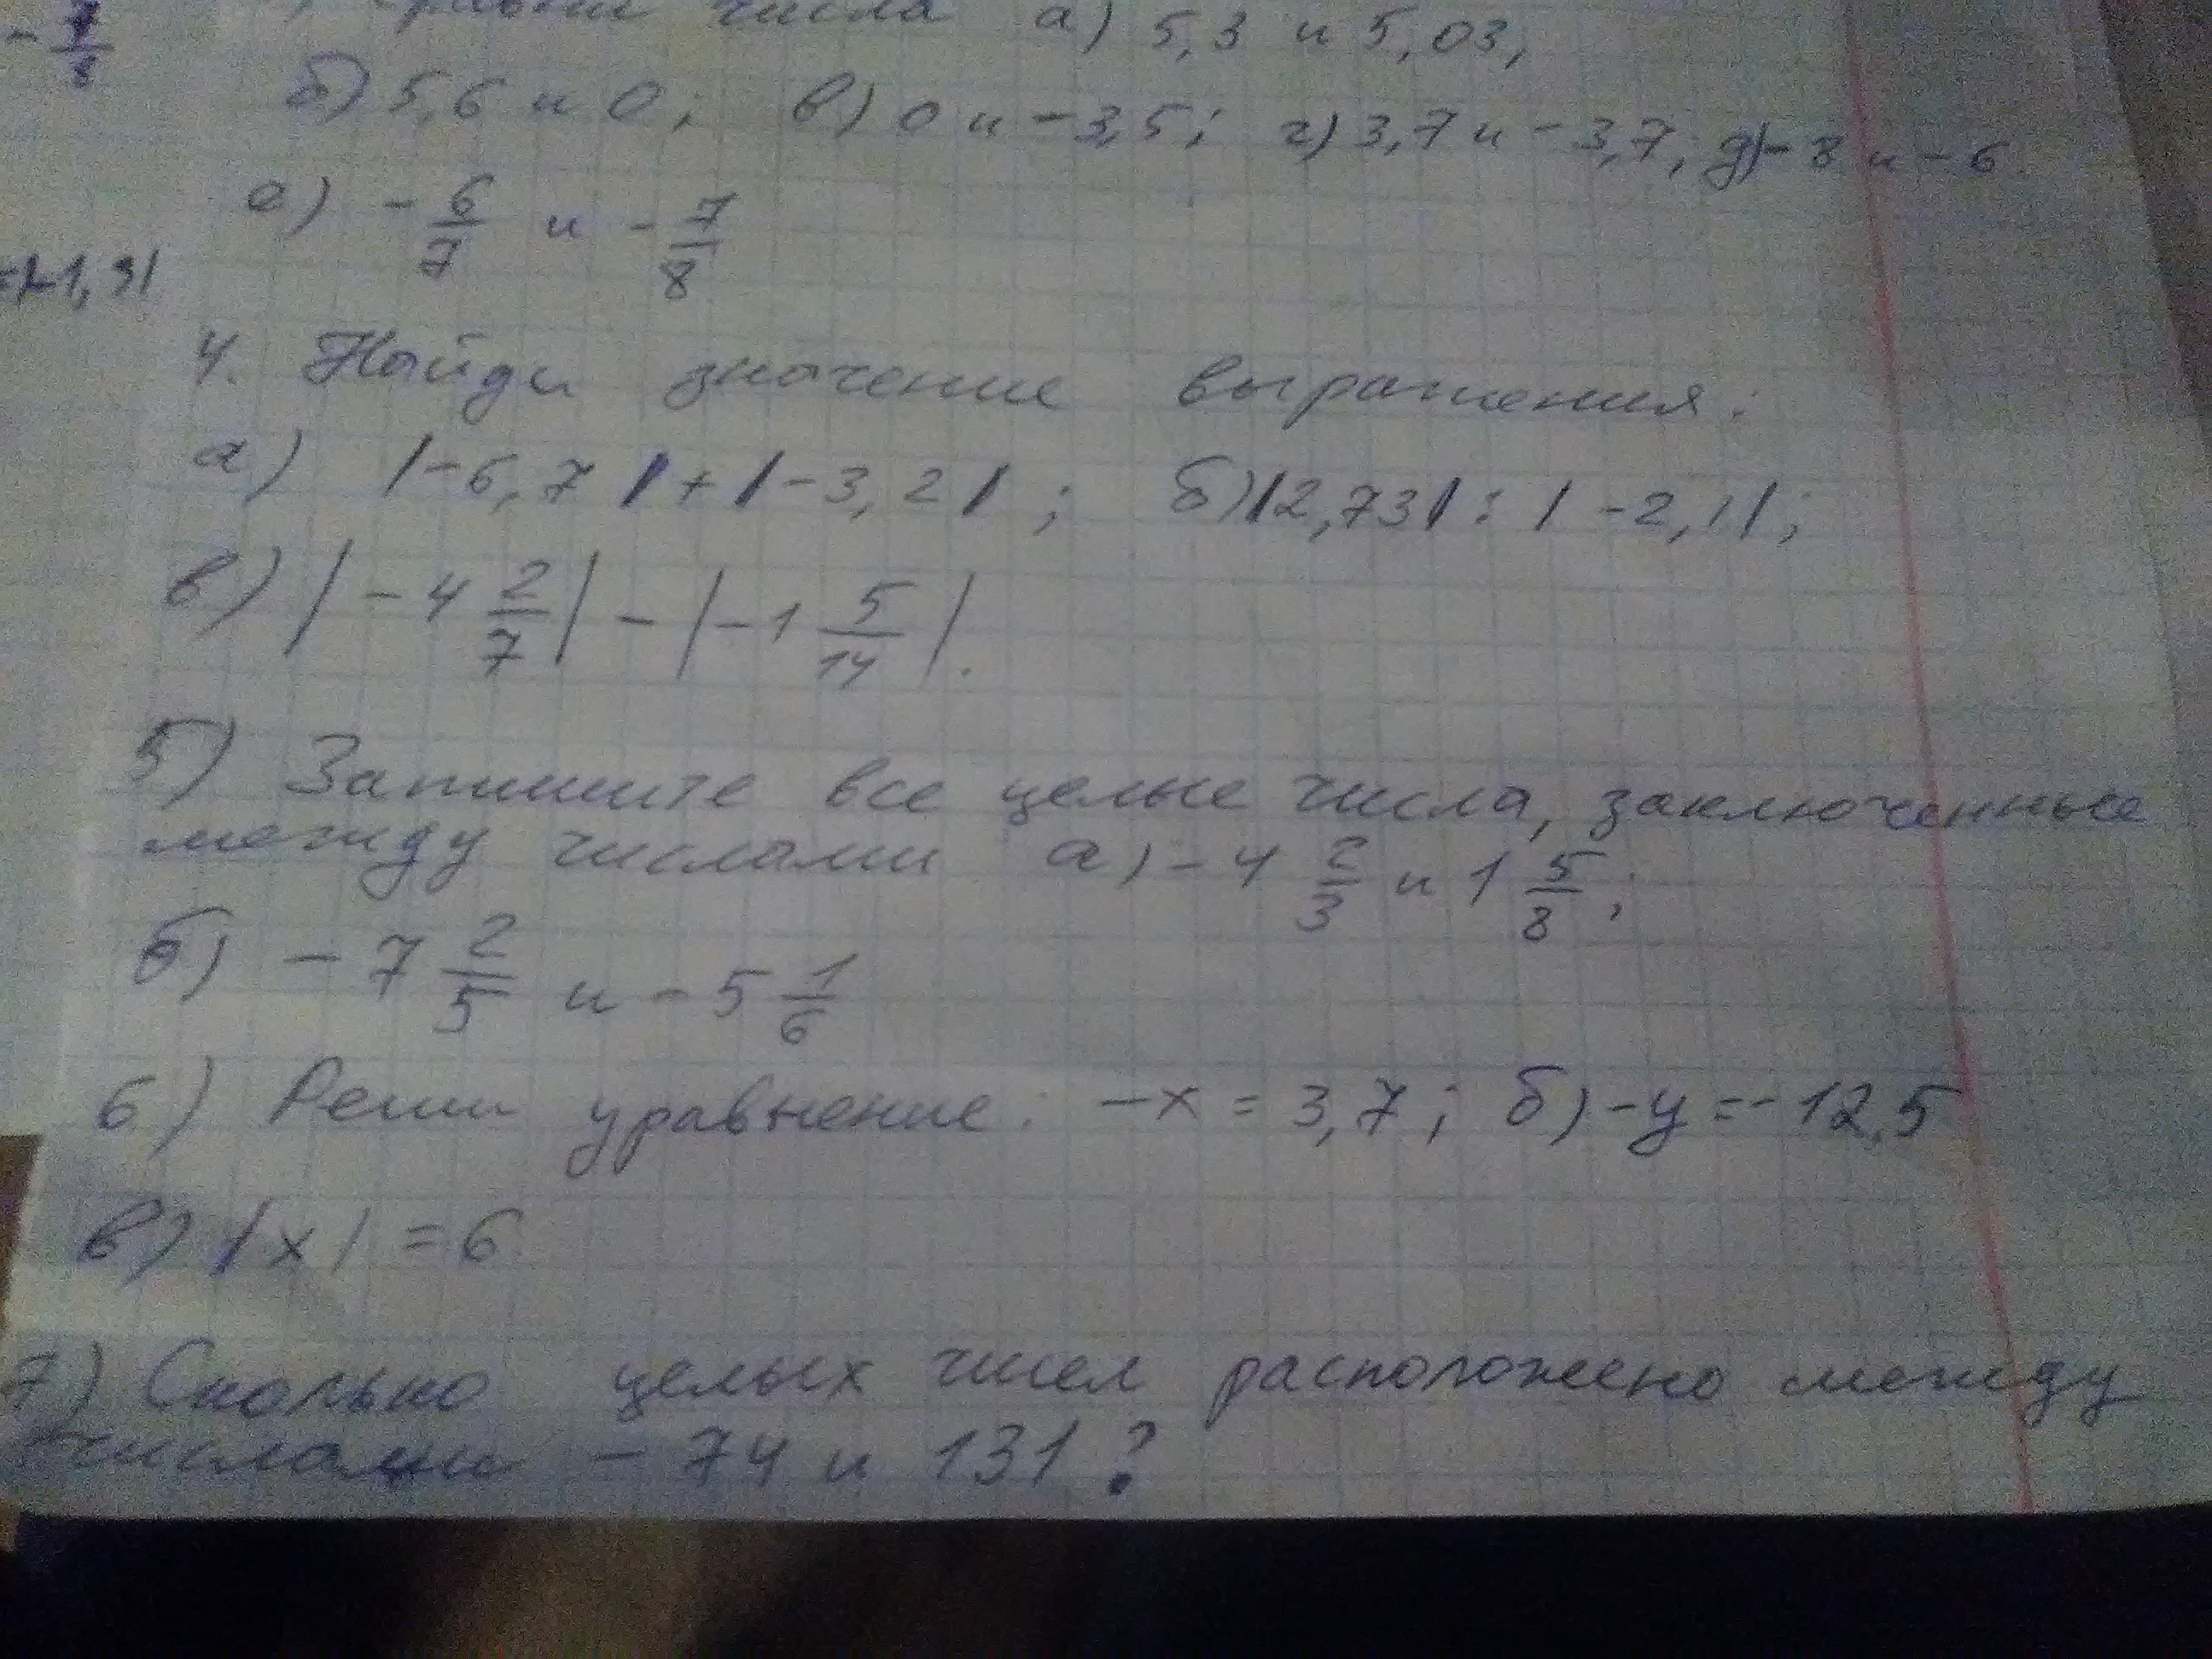 - 7/8
числа а) 5,3 и 5,03,
б) 5,6 и 0; в) 0 и -3,5; г) 3,7 и -3,7; д) -8 и -6
е) - 6/7 и - 7/8
4. Найди значение выражения:
а) |-6,7|+|-3,2|; б) |2,73| : |-2,1|;
в) |-4 2/7| - |-1 5/14|.
5) Запишите все целые числа, заключенные
между числами а) -4 2/3 и 1 5/8;
б) -7 2/5 и -5 1/6
6) Реши уравнение: -х = 3,7; б) -у = -12,5
в) |х| = 6
7) Сколько целых чисел расположено между
числами -74 и 131?